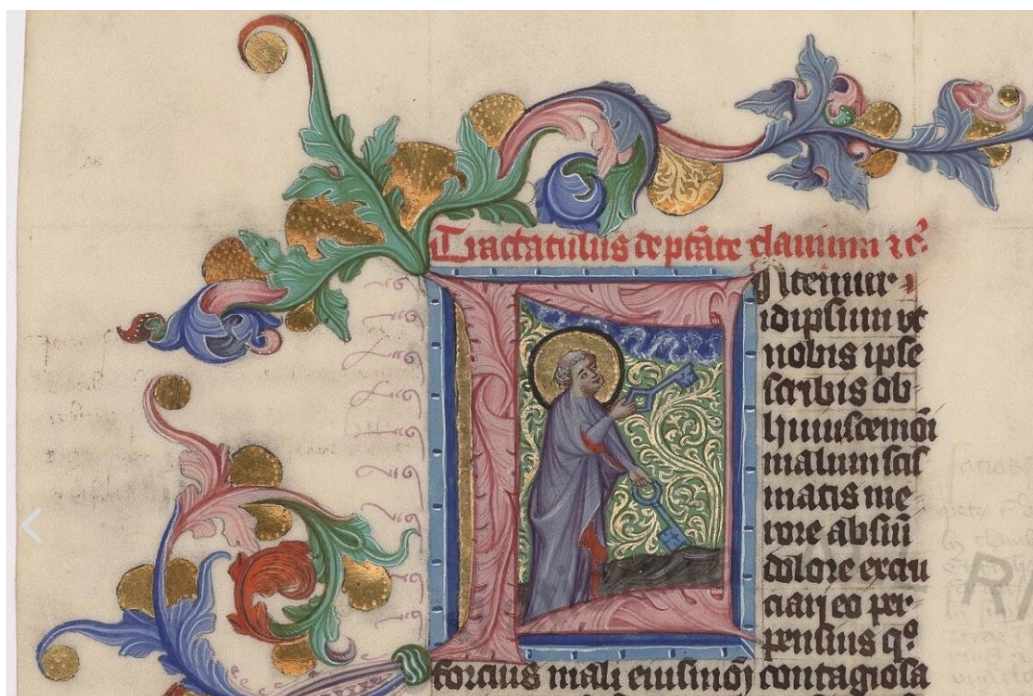 Tractatulus de ptāte clauium ⁊ c̾
idipsum vt
nobis ipse
scribis ob
huiuscemōi
malum scis
matis me
rore absūi
dolore excru
ciari eo per
pensius qͦ
forcius mali eiusmōi contagiosa